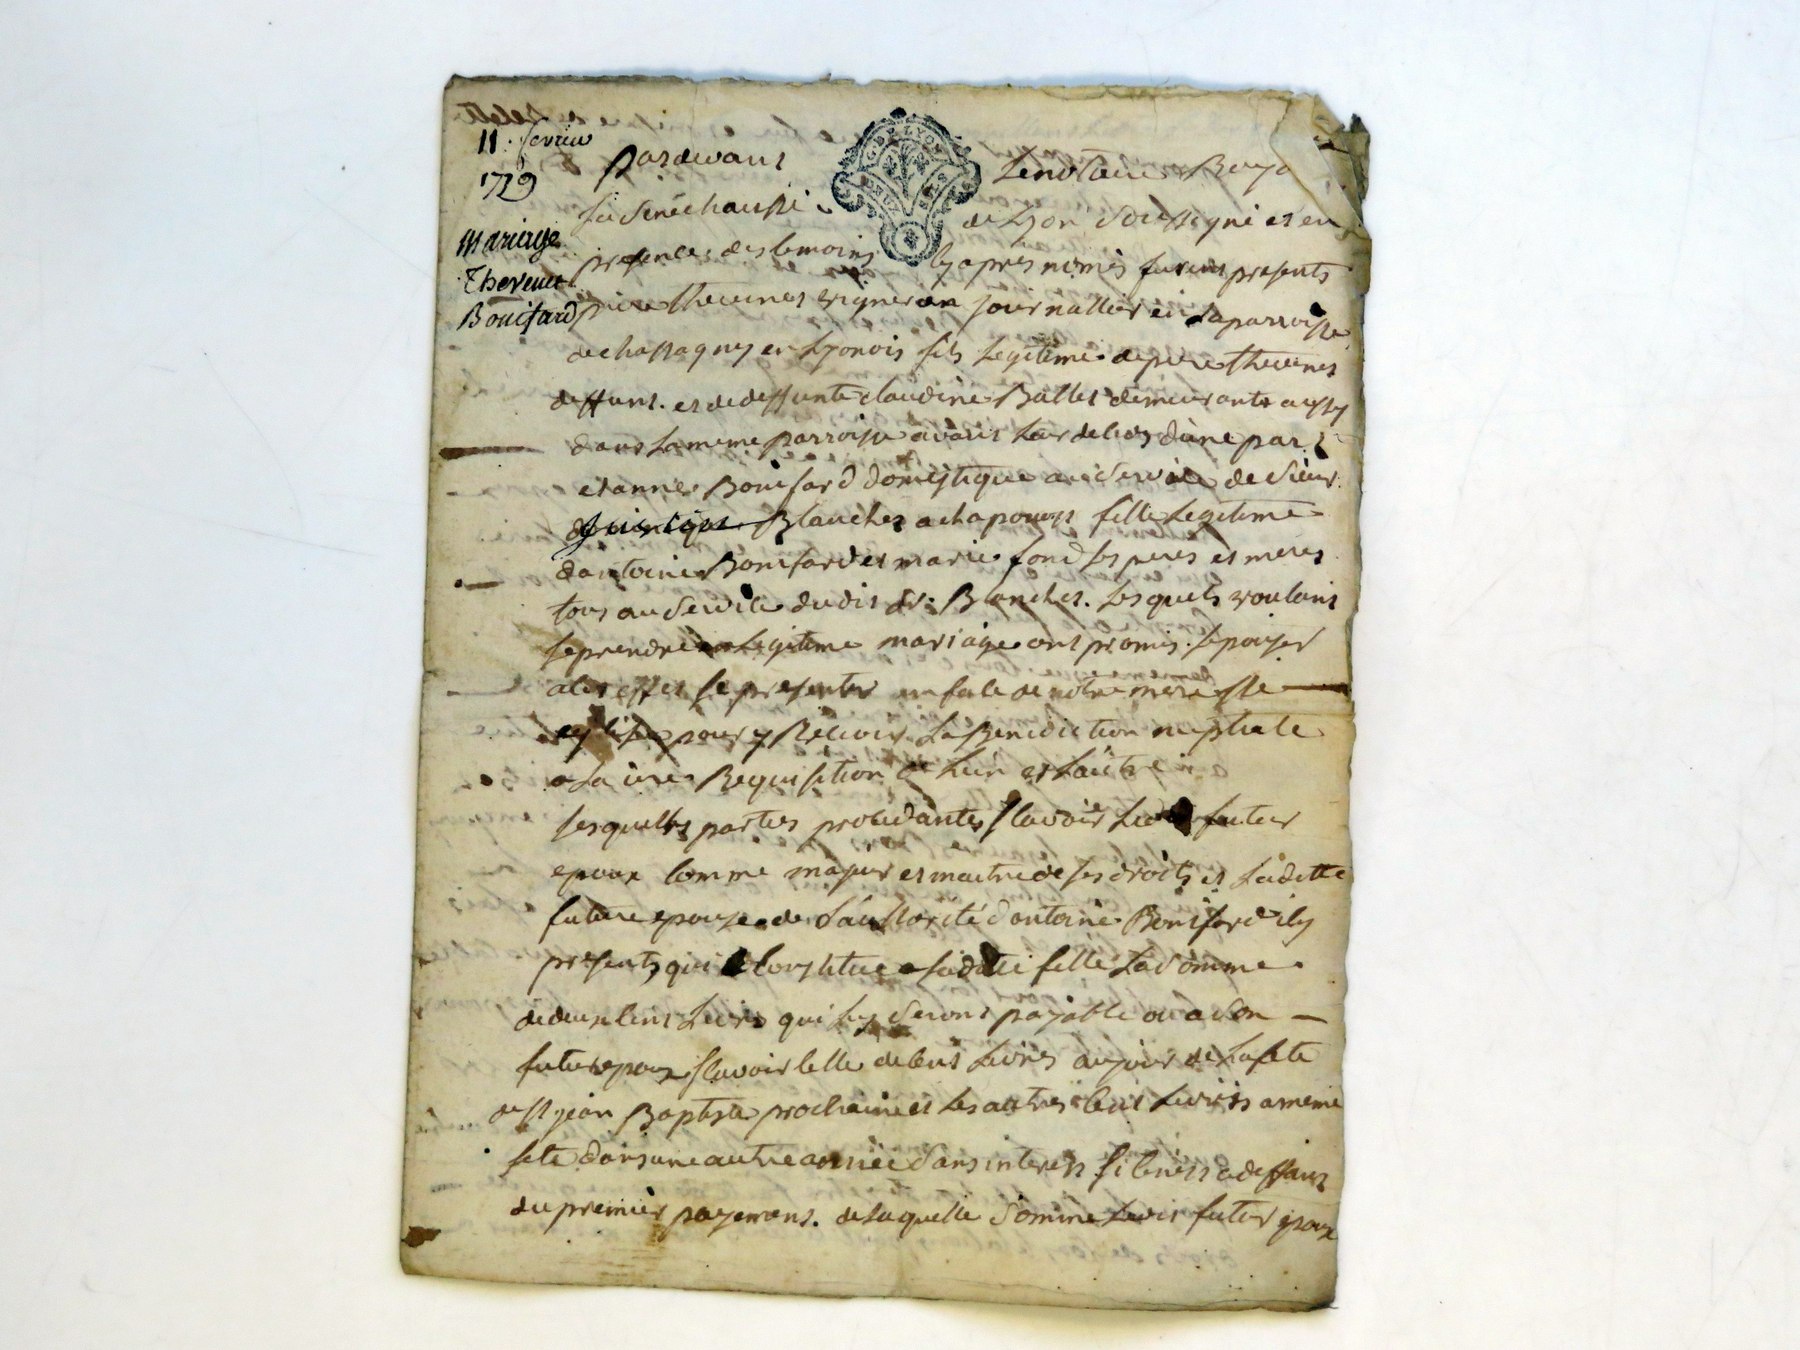 11 fevrier
1729
Mariage
Thevenet
Bonifard
pardevant Le notaire Roya
La Senechaussé de Lyon Soussigné et en
presence des temoins cy apres només furent presents
pierre thevenet vigneron journallier en La parroisse
de chassagny en Lyonois fils Legitime de pierre thevenet
deffunt et de deffunte claudine Ballet demeurants aussy
dans La meme parroisse d'une part
et anne Bonifard domestique au Service de Sieur
Blanchet a chaponost fille Legitime
d'antoine Bonifard et marie fond ses peres et meres
tous au Service dudit Sr. Blanchet. Lesquels voulant
se prendre en Legitime mariage ont promis s'epouser
a cet effet se presenter en face de notre mere Ste
eglise pour y Recevoir La Benediction nuptiale
a La 1ere Requisition de L'un et L'autre
Lesquelles parties procedantes scavoir Ledit futur
epoux comme majeur et maitre de ses droits et Ladite
future epouse de L'authorité d'antoine Bonifard icy
present qui constitue a sadite fille La Somme
de deux cent Livres qui Luy Seront payable ou a Son
futur epoux scavoir celle de cent Livres au jour de La fete
de St jean Baptiste prochaine et Les autres cent Livres a meme
fete dans une autre année Sans interets si ce n'est a deffaut
du premier payement. de Laquelle Somme Ledit futur epoux